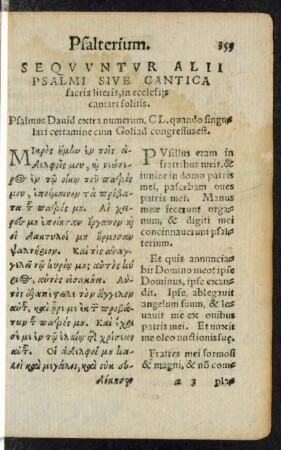 Psalterium. 359
SEQVVNTVR ALII
PSALMI SIVE CANTICA
sacris literis, in ecclesijs
cantari solitis.
Psalmus Dauid extra numerum, CL. quando singu
lari certamine cum Goliad congressus est.
Μικρὸς ἤμην ἐν τοῖς ἀ-
δελφοῖς μου, καὶ νεώτερ-
ος ἐν τῷ οἴκῳ τοῦ πατρός
μου, ἐποίμαινον τὰ πρόβα-
τα τοῦ πατρός μου. Αἱ χεῖ-
ρές μου ἐποίησαν ὄργανον καὶ
οἱ δάκτυλοί μου ἥρμοσαν
ψαλτήριον. Καὶ τίς ἀναγ-
γελεῖ τῷ κυρίῳ μου; αὐτὸς κύ-
ριος, αὐτὸς εἰσακούει. Αὐ-
τὸς ἐξαπέστειλε τὸν ἄγγελον
αὐτοῦ, καὶ ἦρέ με ἐκ τῶν προβά-
των τοῦ πατρός μου. Καὶ ἔχρι-
σέ με ἐν τῷ ἐλαίῳ τῆς χρίσεως
αὐτοῦ. Οἱ ἀδελφοί μου κα-
λοὶ καὶ μεγάλοι, καὶ οὐκ εὐ-
δόκησεν
PVsillus eram in
fratribus meis, &
iunior in domo patris
mei, pascebam oues
patris mei. Manus
meæ fecerunt orga-
num, & digiti mei
concinnauerunt psal-
terium.
Et quis annuncia-
bit Domino meo? ipse
Dominus, ipse exau-
dit. Ipse ablegauit
angelum suum, & le-
uauit me ex ouibus
patris mei. Et vnxit
me oleo vnctionis suæ.
Fratres mei formosi
& magni, & nō com-
z 3 pla-